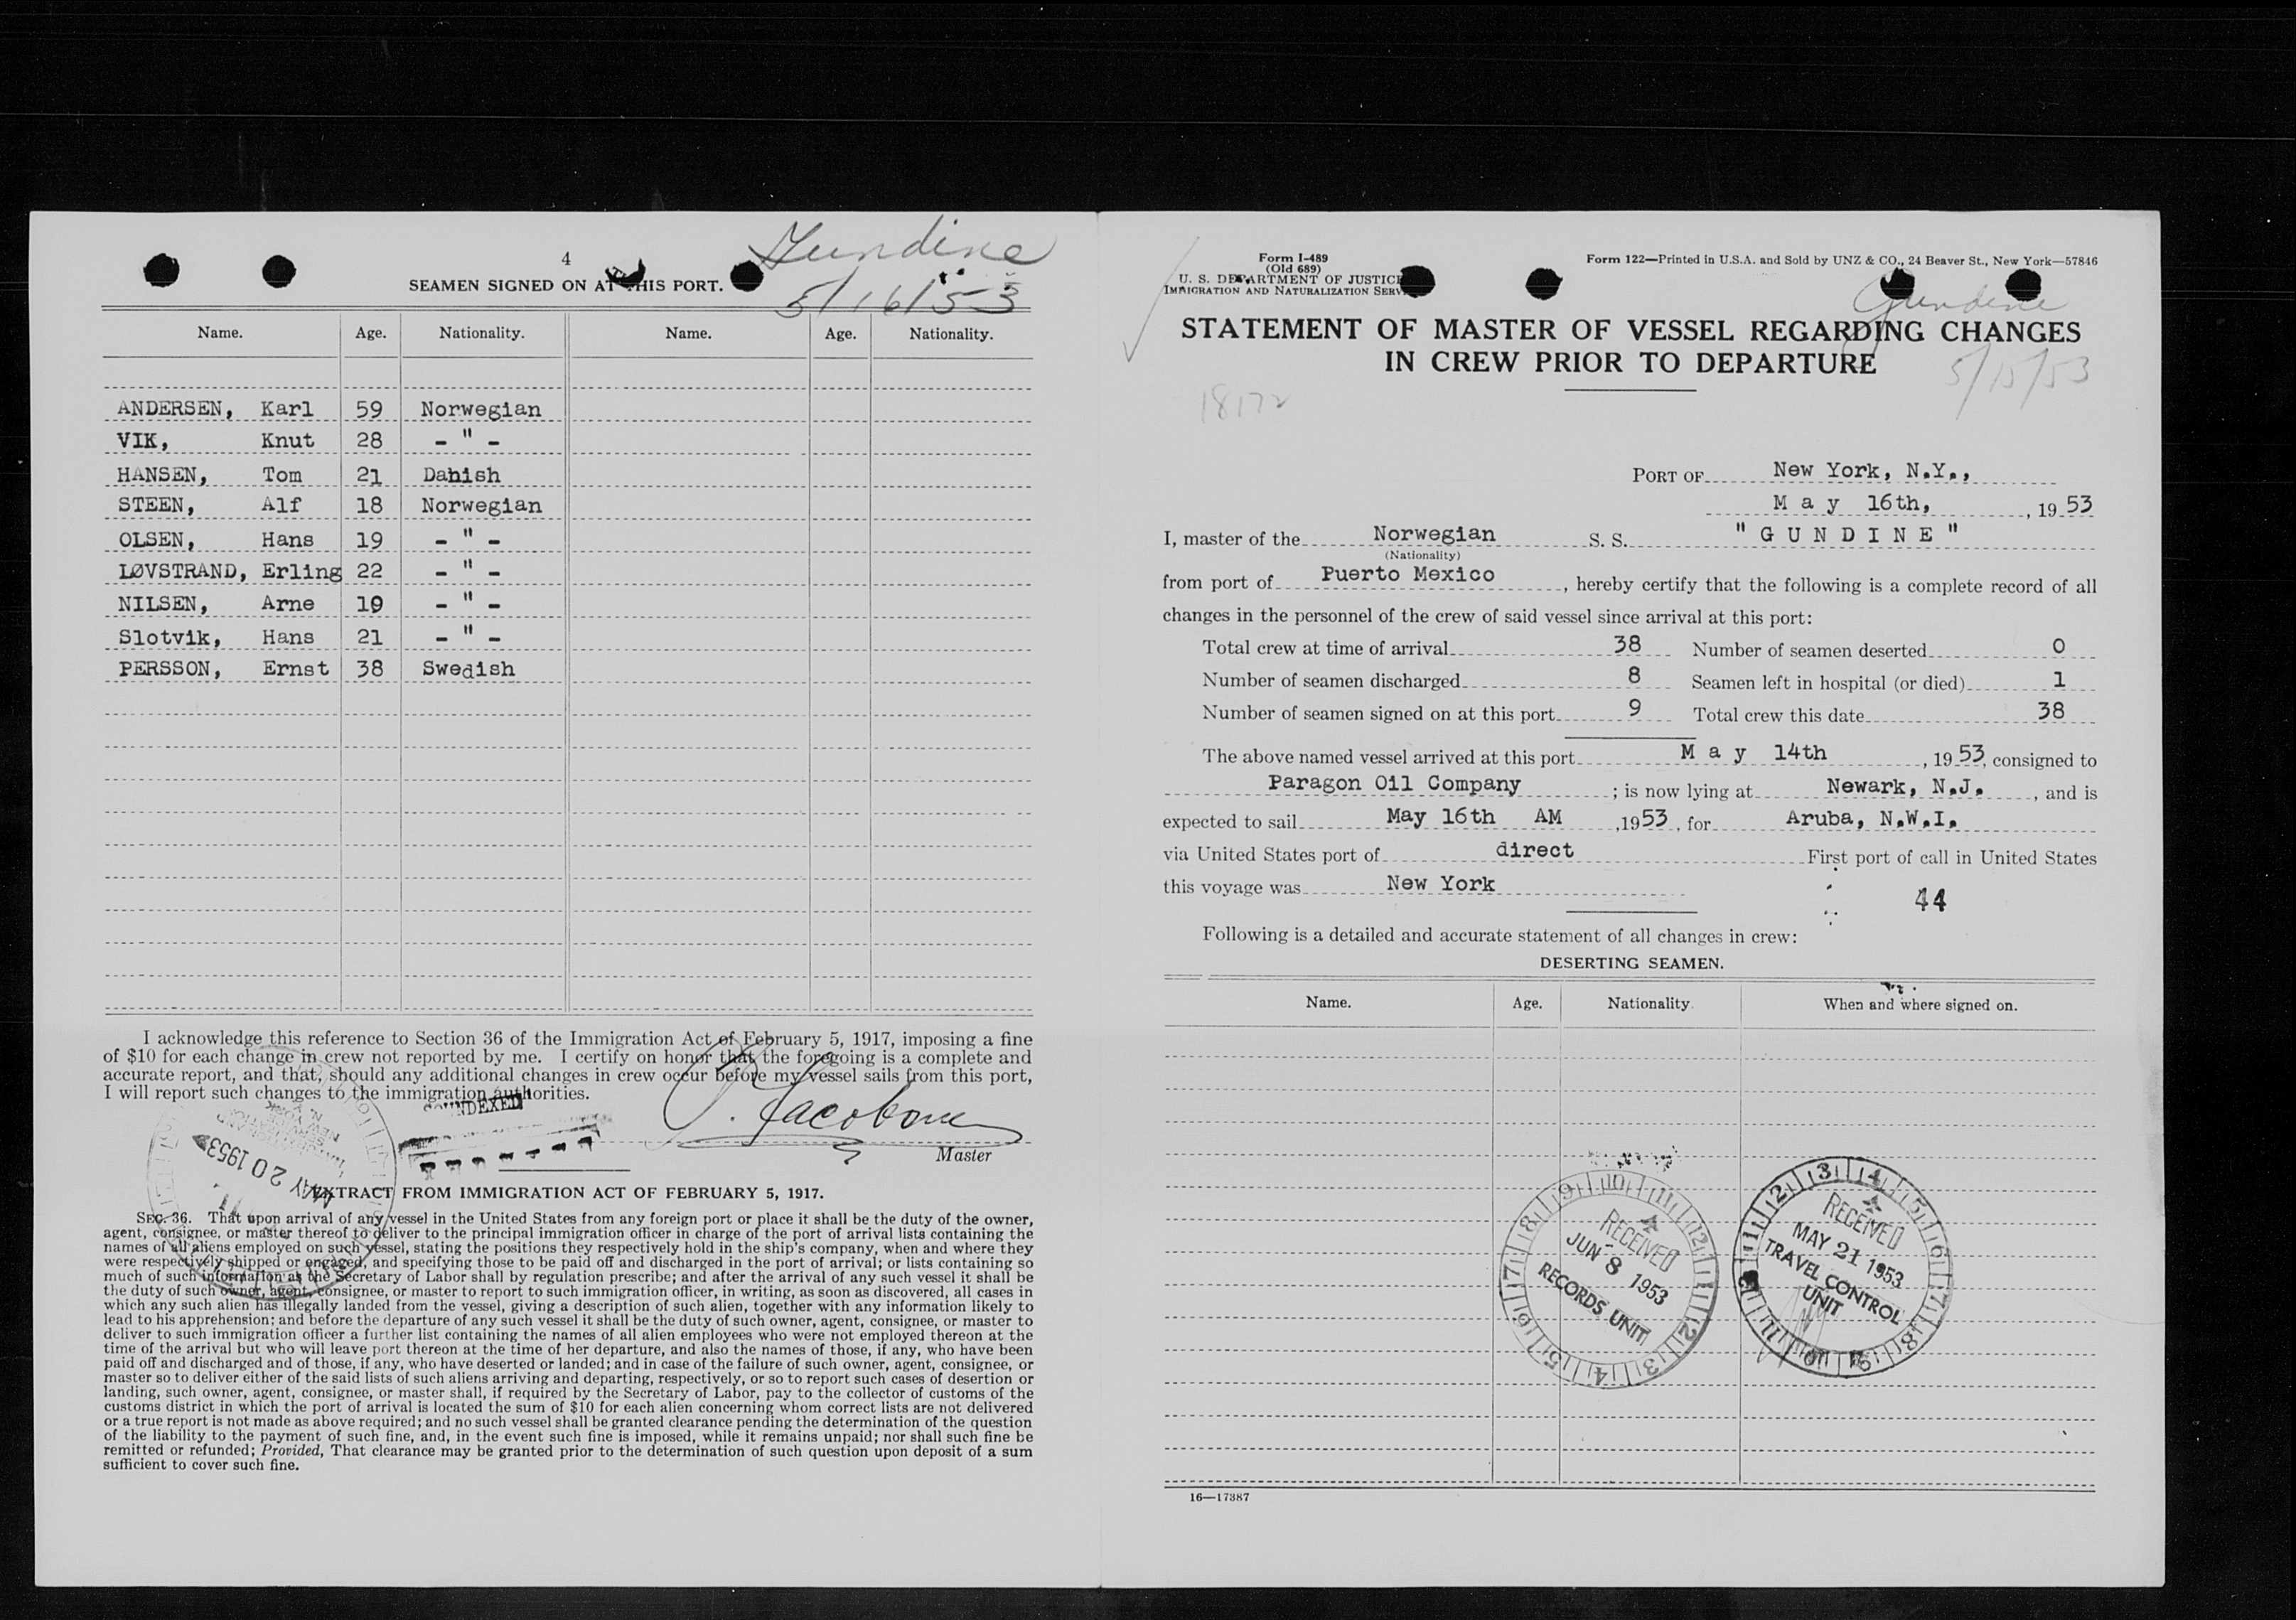 4
Gundine
SEAMEN SIGNED ON AT THIS PORT.
5/16/53
Name. Age. Nationality. Name. Age. Nationality.
ANDERSEN, Karl 59 Norwegian
VIK, Knut 28 - " -
HANSEN, Tom 21 Danish
STEEN, Alf 18 Norwegian
OLSEN, Hans 19 - " -
LØVSTRAND, Erling 22 - " -
NILSEN, Arne 19 - " -
Slotvik, Hans 21 - " -
PERSSON, Ernst 38 Swedish
I acknowledge this reference to Section 36 of the Immigration Act of February 5, 1917, imposing a fine
of $10 for each change in crew not reported by me. I certify on honor that the foregoing is a complete and
accurate report, and that, should any additional changes in crew occur before my vessel sails from this port,
I will report such changes to the immigration authorities.
INDEXED
Jacobsen
Master
MAY 20 1953
EXTRACT FROM IMMIGRATION ACT OF FEBRUARY 5, 1917.
SEC. 36. That upon arrival of any vessel in the United States from any foreign port or place it shall be the duty of the owner,
agent, consignee, or master thereof to deliver to the principal immigration officer in charge of the port of arrival lists containing the
names of all aliens employed on such vessel, stating the positions they respectively hold in the ship's company, when and where they
were respectively shipped or engaged, and specifying those to be paid off and discharged in the port of arrival; or lists containing so
much of such information as the Secretary of Labor shall by regulation prescribe; and after the arrival of any such vessel it shall be
the duty of such owner, agent, consignee, or master to report to such immigration officer, in writing, as soon as discovered, all cases in
which any such alien has illegally landed from the vessel, giving a description of such alien, together with any information likely to
lead to his apprehension; and before the departure of any such vessel it shall be the duty of such owner, agent, consignee, or master to
deliver to such immigration officer a further list containing the names of all alien employees who were not employed thereon at the
time of the arrival but who will leave port thereon at the time of her departure, and also the names of those, if any, who have been
paid off and discharged and of those, if any, who have deserted or landed; and in case of the failure of such owner, agent, consignee, or
master so to deliver either of the said lists of such aliens arriving and departing, respectively, or so to report such cases of desertion or
landing, such owner, agent, consignee, or master shall, if required by the Secretary of Labor, pay to the collector of customs of the
customs district in which the port of arrival is located the sum of $10 for each alien concerning whom correct lists are not delivered
or a true report is not made as above required; and no such vessel shall be granted clearance pending the determination of the question
of the liability to the payment of such fine, and, in the event such fine is imposed, while it remains unpaid; nor shall such fine be
remitted or refunded; Provided, That clearance may be granted prior to the determination of such question upon deposit of a sum
sufficient to cover such fine.
Form I-489
(Old 689)
U. S. DEPARTMENT OF JUSTICE
IMMIGRATION AND NATURALIZATION SERV
Form 122—Printed in U.S.A. and Sold by UNZ & CO., 24 Beaver St., New York—57846
Gundine
STATEMENT OF MASTER OF VESSEL REGARDING CHANGES
IN CREW PRIOR TO DEPARTURE
5/15/53
18172
PORT OF New York, N.Y.,
May 16th, , 1953
I, master of the Norwegian S. S. "GUNDINE"
(Nationality)
from port of Puerto Mexico , hereby certify that the following is a complete record of all
changes in the personnel of the crew of said vessel since arrival at this port:
Total crew at time of arrival 38 Number of seamen deserted 0
Number of seamen discharged 8 Seamen left in hospital (or died) 1
Number of seamen signed on at this port 9 Total crew this date 38
The above named vessel arrived at this port May 14th , 1953, consigned to
Paragon Oil Company ; is now lying at Newark, N.J. , and is
expected to sail May 16th AM ,1953, for Aruba, N.W.I.
via United States port of direct First port of call in United States
this voyage was New York
44
Following is a detailed and accurate statement of all changes in crew:
DESERTING SEAMEN.
Name. Age. Nationality. When and where signed on.
RECEIVED
JUN 8 1953
RECORDS UNIT
RECEIVED
MAY 21 1953
TRAVEL CONTROL
UNIT
16—17387